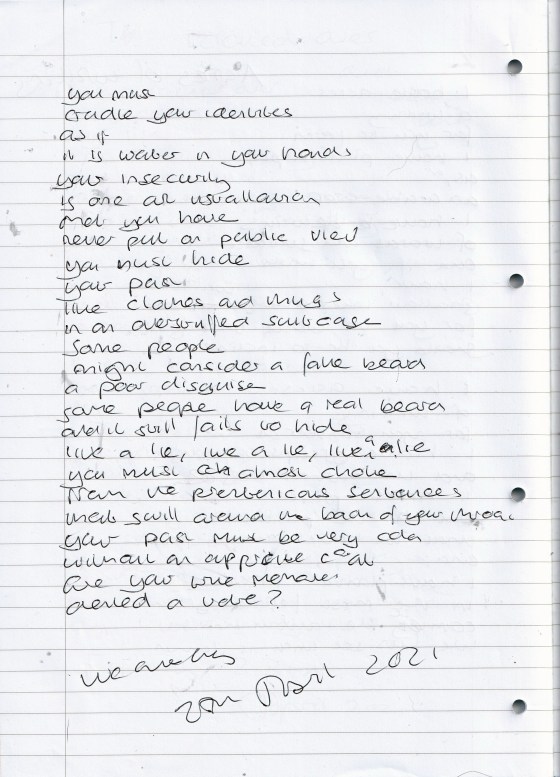 you must
cradle your identities
as if
it is water in your hands
your insecurity
is one art installation
that you have
never put on public view
you must hide
your past
like clothes and things
in an overstuffed suitcase
some people
might consider a fake beard
a poor disguise
some people have a real beard
and it still fails to hide
live a lie, live a lie, live a lie
you must almost choke
from the pretentious sentences
that swill around the back of your throat
your past must be very cold
without an appropriate coat
are your
denied a voice?
20th April 2021